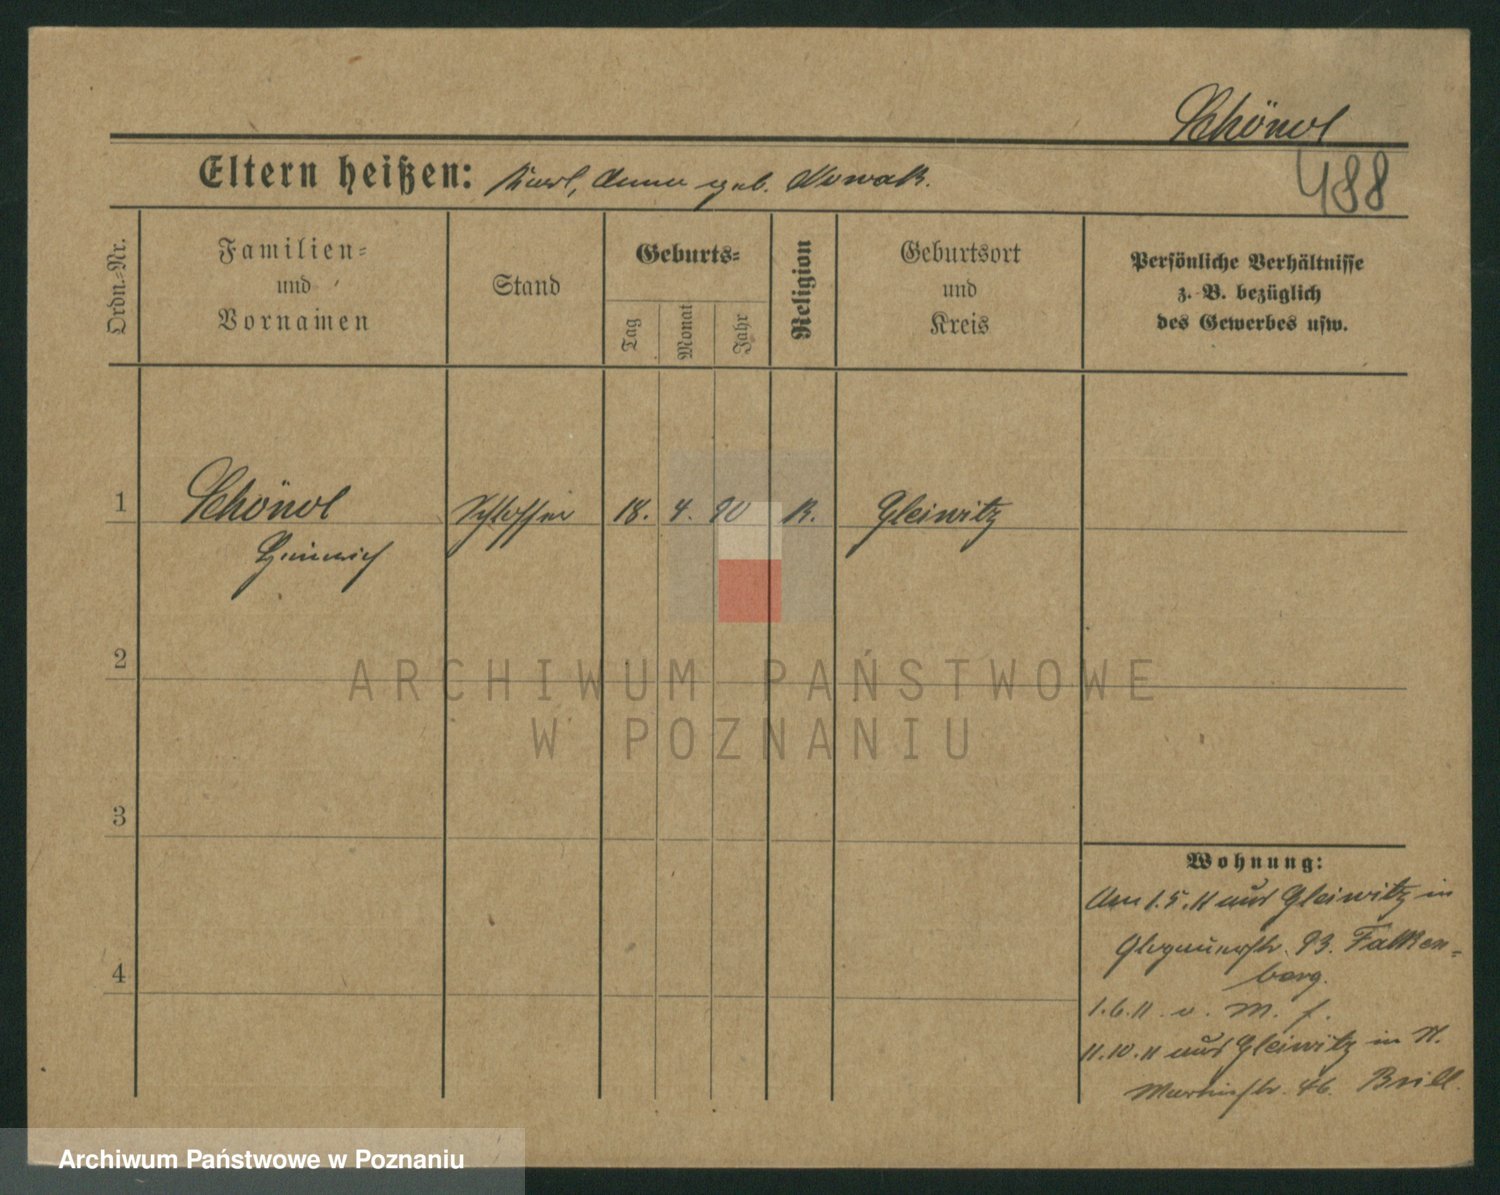 Schönol
488
Eltern heißen: Karl, Anna geb. Nowak.
Ordn.-Nr.
Familien-
und
Vornamen
Stand
Geburts-
Tag
Monat
Jahr
Religion
Geburtsort
und
Kreis
Persönliche Verhältnisse
z. B. bezüglich
des Gewerbes usw.
1 Schönol Schlosser 18. 4. 90 K. Gleiwitz
Heinrich
2
ARCHIWUM PAŃSTWOWE
W POZNANIU
3
Wohnung:
Am 1.5.11 aus Gleiwitz in
Glogauerstr. 93. Falken-
berg.
4
1.6.11. v. M. f.
11.10.11 aus Gleiwitz in St.
Martinstr. 46. Brill.
Archiwum Państwowe w Poznaniu